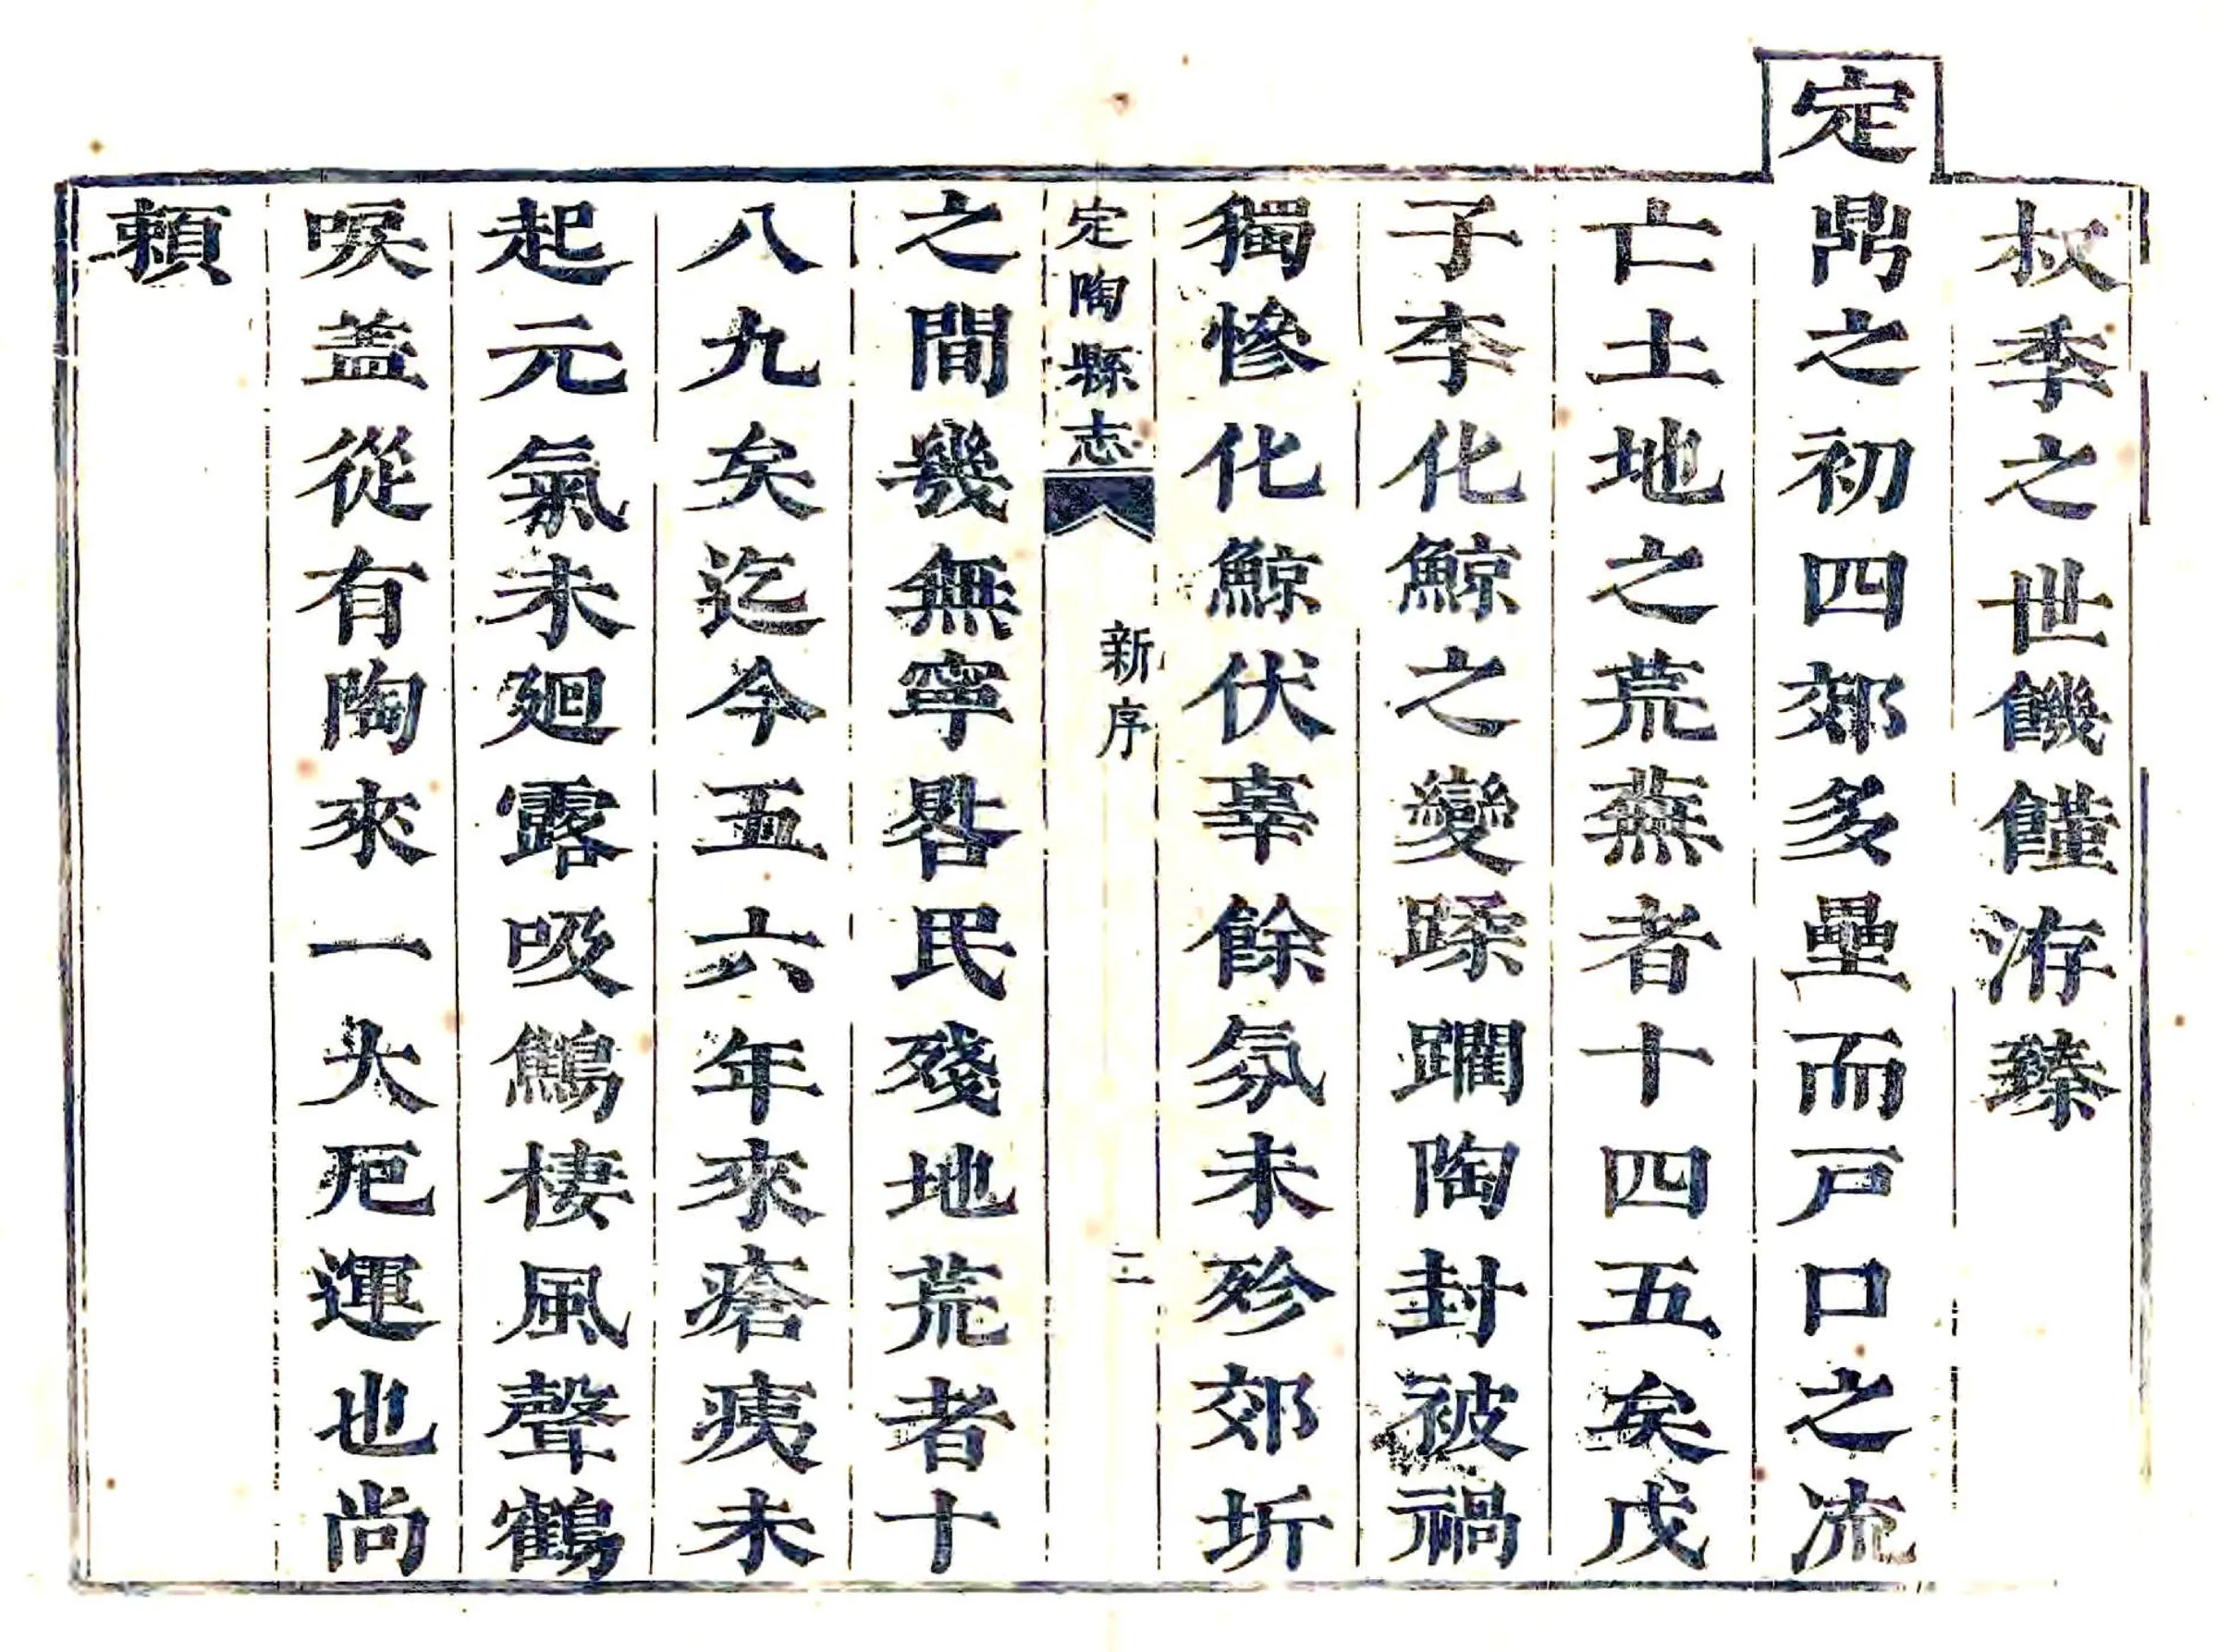 叔季之世饑饉洊臻
定鼎之初四郊多壘而戸口之流
亡土地之荒蕪者十四五矣戊
子李化鯨之變蹂躙陶封被禍
獨慘化鯨伏辜餘氛未殄郊圻
定陶縣志 新序 二
之間幾無寧晷民殘地荒者十
八九矣迄今五六年來瘡痍未
起元氣未廻露吸鷦棲風聲鶴
唳蓋從有陶來一大厄運也尚
賴